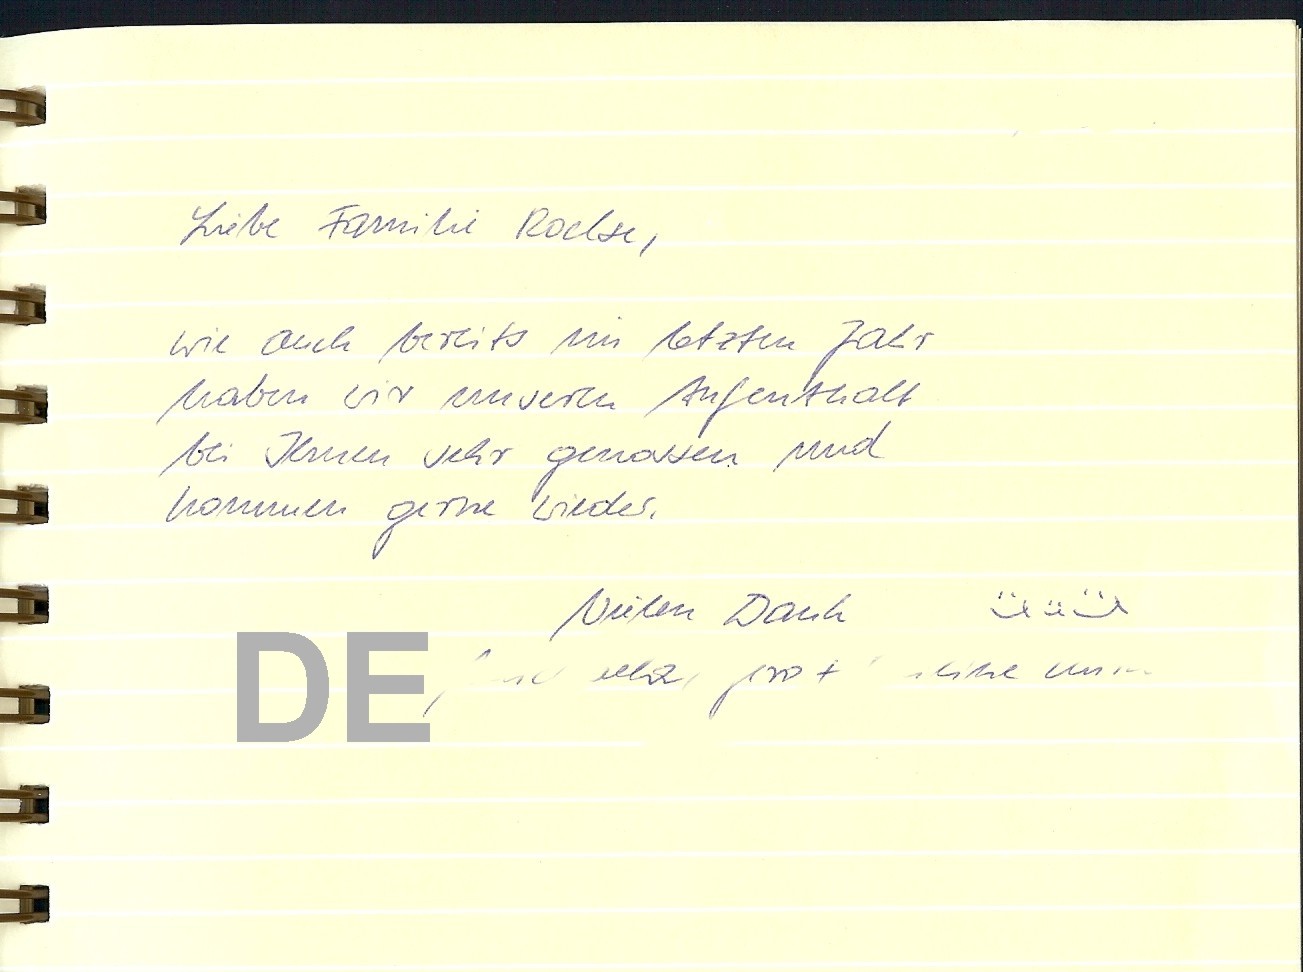 Liebe Familie
wie auch bereits im letzten Jahr
haben wir unseren Aufenthalt
bei Ihnen sehr genossen und
kommen gerne wieder.
Vielen Dank
DE